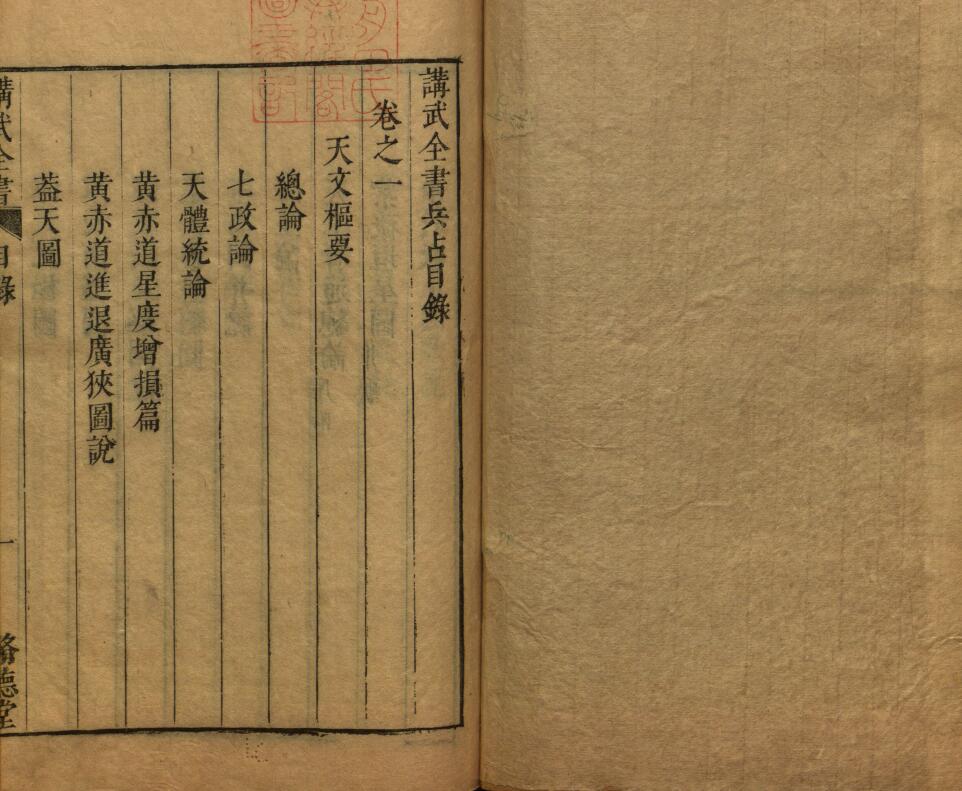 講武全書兵占目錄
卷之一
天文樞要
總論
七政論
天體統論
黄赤道星度增損篇
黄赤道進退廣狹圖說
葢天圖
講武全書
目錄
一